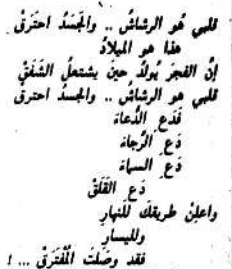 قلبي هُو الرشاشُ .. والجَسَدُ احتَرَقْ
هذا هو الميلادُ
إنَّ الفجرَ يُولَدُ حينَ يشتعلُ الشَّفَقْ
قلبي هو الرشاشُ .. والجسدُ احترقْ
فَدَعِ الدُّعاءَ
دَعِ الرَّجاءَ
دَعِ السماءَ
دَعِ القَلَقْ
واعلِنْ طريقكَ للنهارِ
ولليسارِ
فقد وصَلتَ المُفتَرَقْ ... !